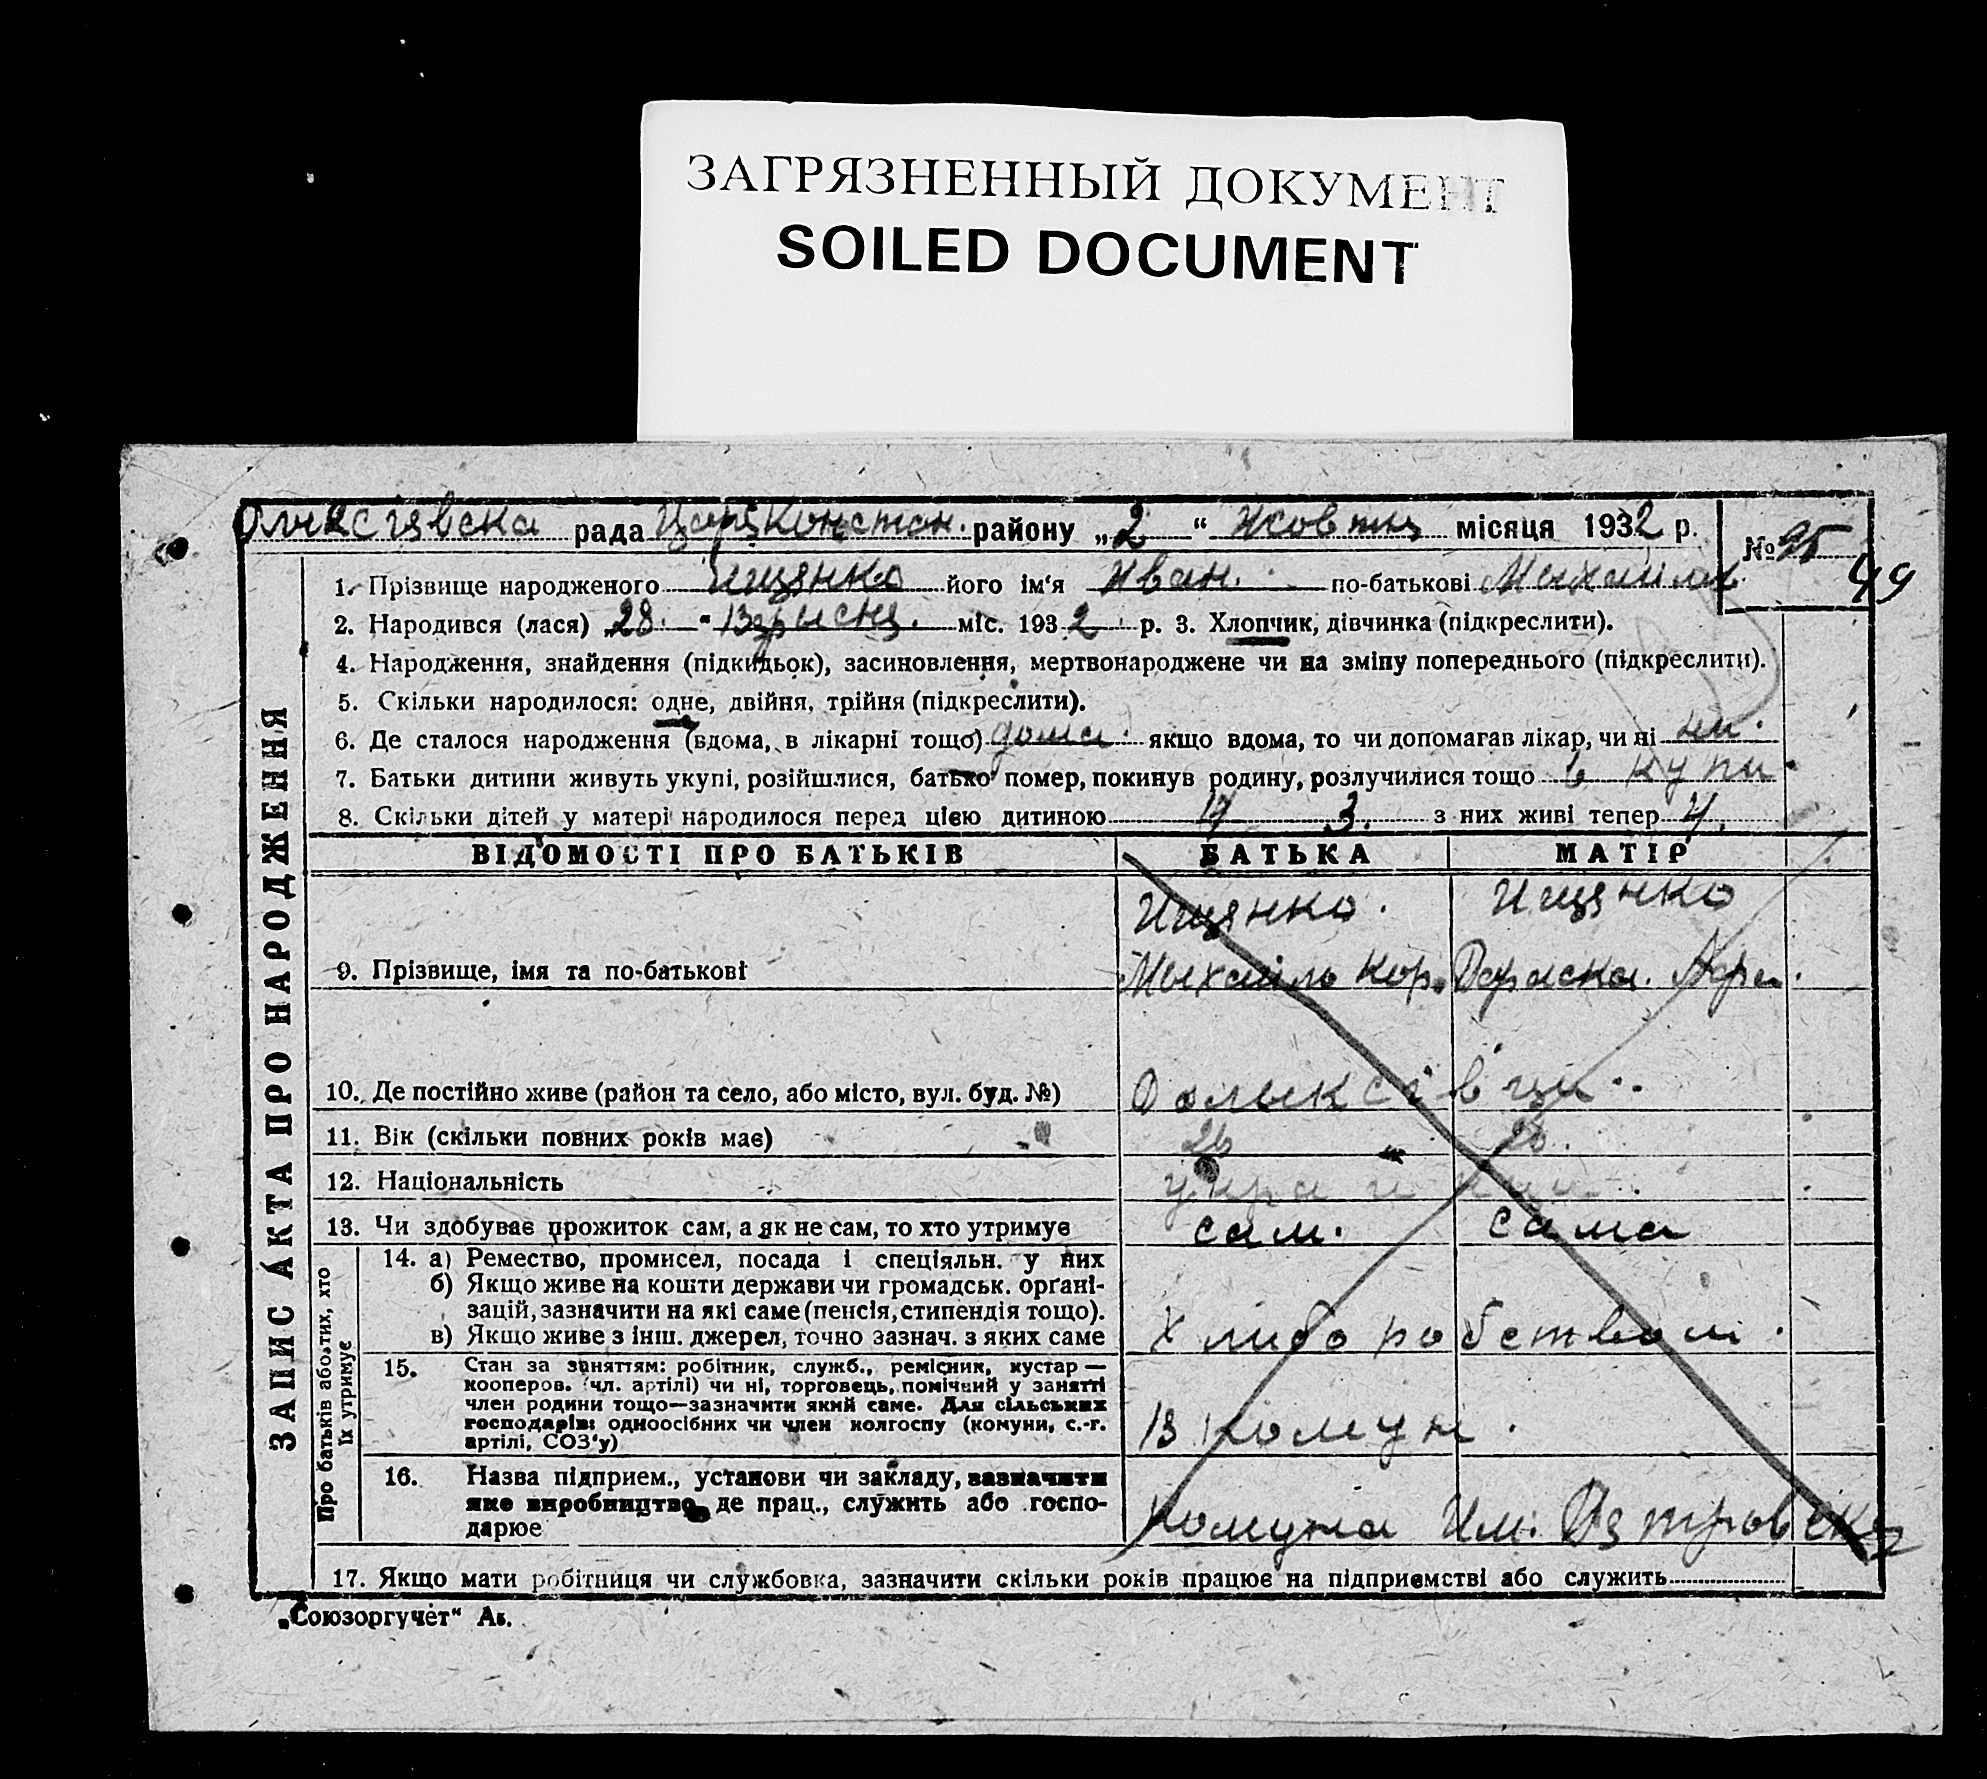 ЗАГРЯЗНЕННЫЙ ДОКУМЕНТ
SOILED DOCUMENT
Олексіївска рада Цареконстан. району „2“ Жовтня місяця 1932 р. № 95
49
ЗАПИС АКТА ПРО НАРОДЖЕННЯ
1. Прізвище народженого Ищенко його ім‘я Иван. по-батькові
2. Народився (лася) „28.“ Вэрысня. міс. 1932 р. 3. Хлопчик, дівчинка (підкреслити).
4. Народження, знайдення (підкидьок), засиновлення, мертвонароджене чи на зміну попереднього (підкреслити).
5. Скільки народилося: одне, двійня, трійня (підкреслити).
6. Де сталося народження (вдома, в лікарні тощо) дома якщо вдома, то чи допомагав лікар, чи ні ни.
7. Батьки дитини живуть укупі, розійшлися, батько помер, покинув родину, розлучилися тощо в купи.
8. Скільки дітей у матері народилося перед цією дитиною 3. з них живі тепер 4.
ВІДОМОСТІ ПРО БАТЬКІВ БАТЬКА МАТІР
Ищенко. Ищенко
9. Прізвище, імя та по-батькові Мыхайло Кор.
10. Де постійно живе (район та село, або місто, вул. буд. №)
11. Вік (скільки повних років має) 26 26.
12. Національність
13. Чи здобуває прожиток сам, а як не сам, то хто утримує сам. сама
Про батьків або тих, хто їх утримує
14. а) Ремество, промисел, посада і спеціяльн. у них
б) Якщо живе на кошти держави чи громадськ. орґані-
зацій, зазначити на які саме (пенсія, стипендія тощо).
в) Якщо живе з інш. джерел, точно зазнач. з яких саме Хлиборобством.
15. Стан за заняттям: робітник, служб., ремісник, кустар —
кооперов. (чл. артілі) чи ні, торговець, помічний у занятті
член родини тощо—зазначити який саме. Для сільських
господарів: одноосібних чи член колгоспу (комуни, с.-г.
артілі, СОЗ‘у) В комун.
16. Назва підприєм., установи чи закладу, зазначити
яке виробництво, де прац., служить або госпо-
дарює комуна Им. Петровск
17. Якщо мати робітниця чи службовка, зазначити скільки років працює на підприємстві або служить
„Союзоргучёт“ Ак.